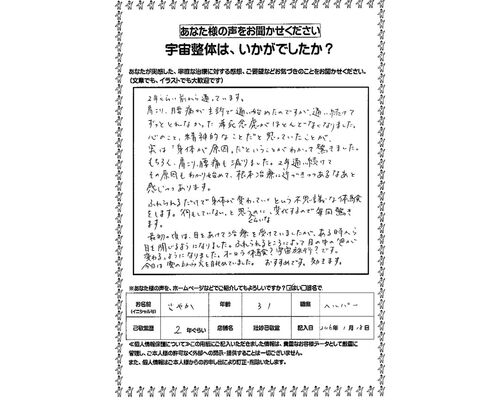 あなた様の声をお聞かせください
宇宙整体は、いかがでしたか？
あなたが実感した、率直な治療に対する感想、ご要望などお気づきのことをお聞かせください。
（文章でも、イラストでも大歓迎です）
2年くらい前から通っています。
肩こり、腰痛が主訴で通い始めたのですが、通い続けて
ずっととれなかった希死念慮がほとんどなくなりました。
心のこと、精神的なことだと思っていたことが、
実は「身体が原因」だということがわかって驚きました。
もちろん、肩こり、腰痛も減りました。2年通い続けて
その原因もわかり始めて、根本治療に近づきつつあるなあと
感じつつあります。
ふれられるだけで身体が変わっていくという不思議な体験
をします。「何もしていない」と思うのに、変化するので毎回驚き
ます。
最初の頃は、目をあけて治療を受けていましたが、ある時から
目を閉じるようになりました。ふれられるところによって目の中の色が
変わるようになりました。オーロラ体験？宇宙旅行？です。
おすすめです。効きます。
※あなた様の声を、ホームページなどでご紹介してもよろしいですか？
お名前
（イニシャル可）
さやか
年齢
31
職業
ヘルパー
ご来院歴
2年ぐらい
店舗名
記入日
≪個人情報保護について≫この用紙にご記入いただきました情報は、貴重なお客様データとして厳重に
管理し、ご本人様の許可なく外部への開示・提供することは一切ございません。
また、個人情報はご本人様からのお申し出により訂正・削除いたします。